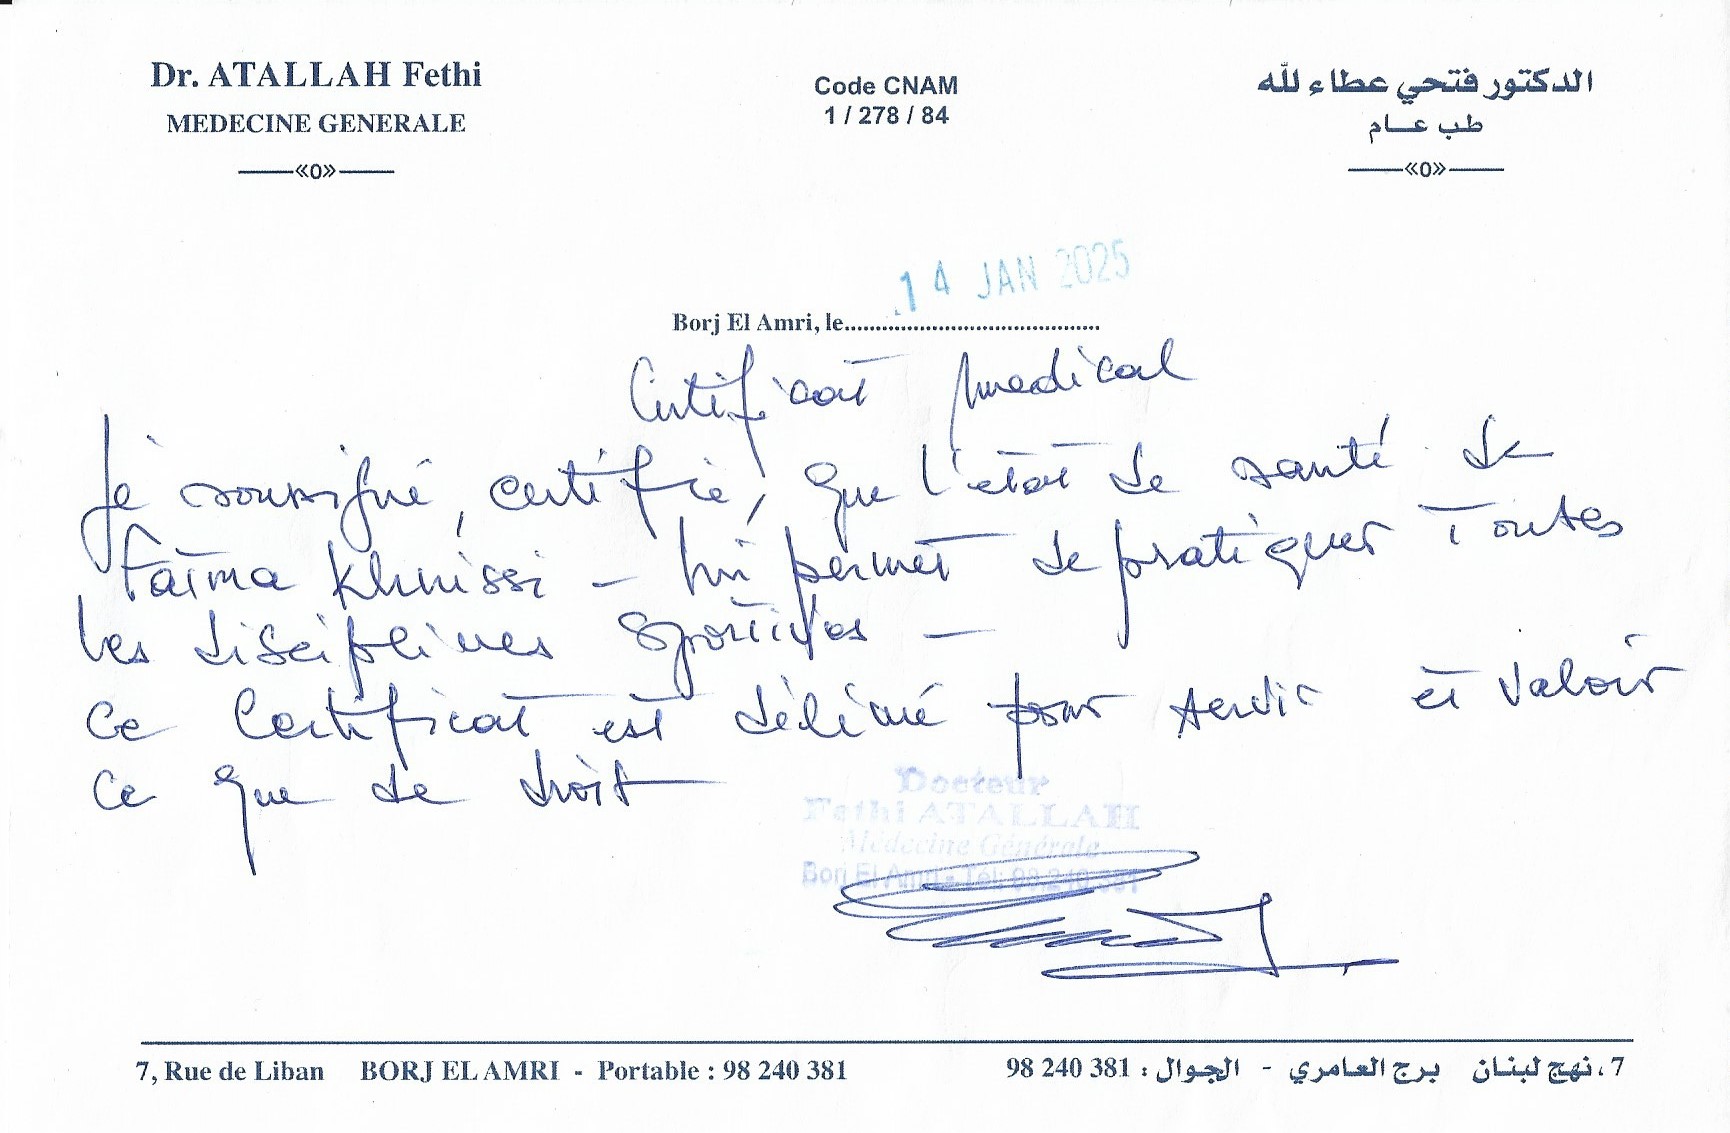 Dr. ATALLAH Fethi
MEDECINE GENERALE
«0»
Code CNAM
1 / 278 / 84
الدكتور فتحي عطاء لله
طب عام
«0»
14 JAN 2025
Borj El Amri, le
Certificat medical
Je soussigné, certifie, que l'état de santé de
Fatma Khmissi - lui permet de pratiquer Toutes
les disciplines sportives -
Ce Certificat est délivré pour servir et valoir
Ce que de droit
Docteur
Fethi ATALLAH
Médecine Générale
Borj El Amri - Tél: 98 240 381
7, Rue de Liban BORJ EL AMRI - Portable : 98 240 381
7، نهج لبنان برج العامري - الجوال : 381 240 98